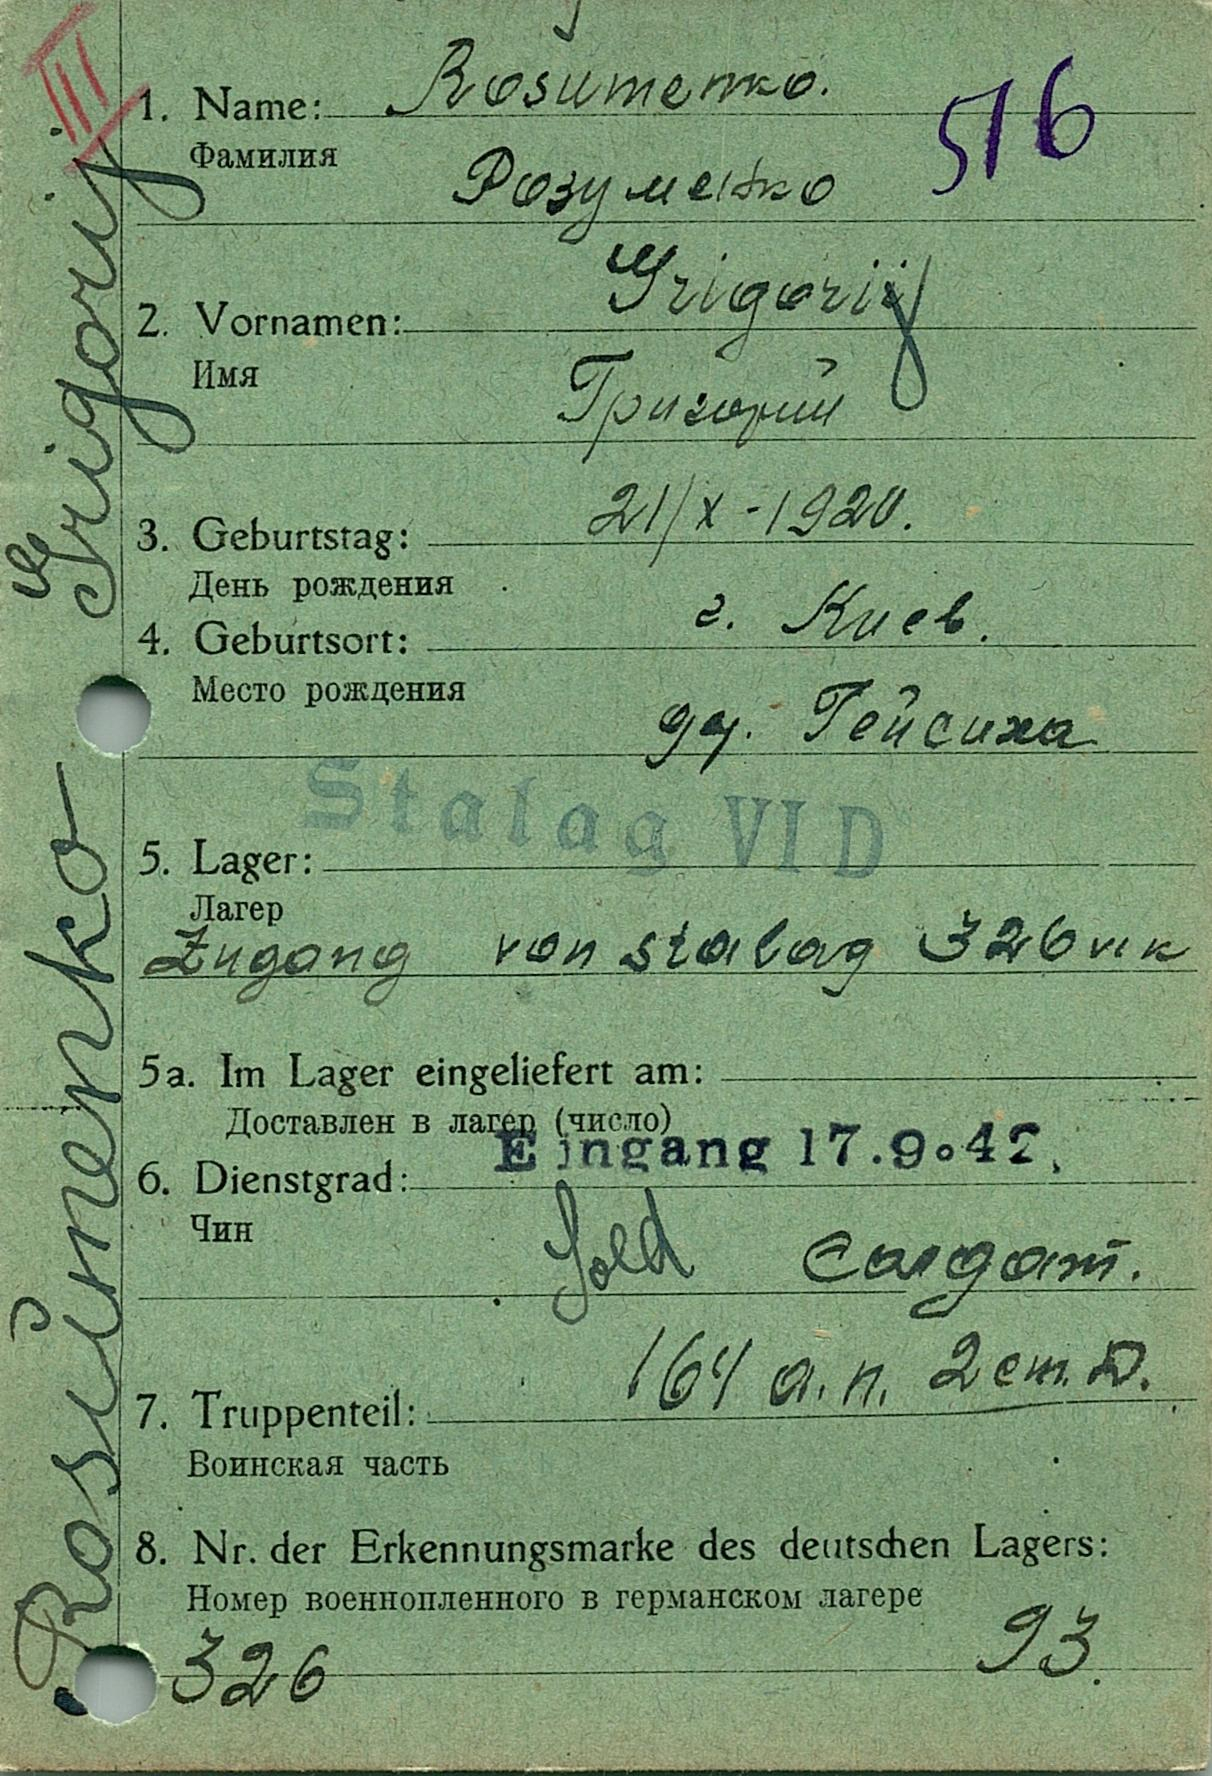 III
516
1. Name: Rosŭmenko.
Фамилия
Розуменко
2. Vornamen: Grigorij
Имя
Григорий
3. Geburtstag: 21/X-1920.
День рождения
4. Geburtsort: г. Киев.
Место рождения
Гейсиха
Stalag VI D
5. Lager:
Лагер
Zugang von stalag 326 VI K
5a. Im Lager eingeliefert am:
Доставлен в лагер (число)
Eingang 17.9.42.
6. Dienstgrad:
Чин
Sold Салдат.
7. Truppenteil: 164 а.п. 2 ст. Д.
Воинская часть
8. Nr. der Erkennungsmarke des deutschen Lagers:
Номер военнопленного в германском лагере
326 93.
Rosŭmenko Grigorij